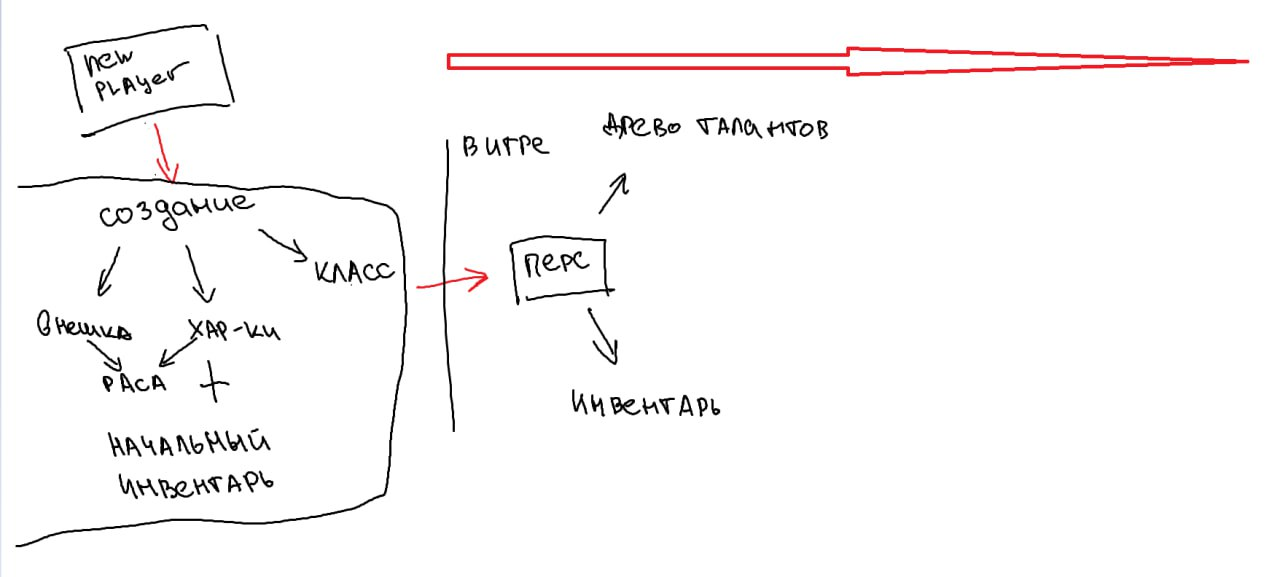 new
PLAyer
СОЗДАНИЕ
КЛАСС
Внешка
ХАР-КИ
РАСА +
НАЧАЛЬНЫЙ
ИНВЕНТАРЬ
В ИГРЕ
ДРЕВО ТАЛАНТОВ
ПЕРС
ИНВЕНТАРЬ